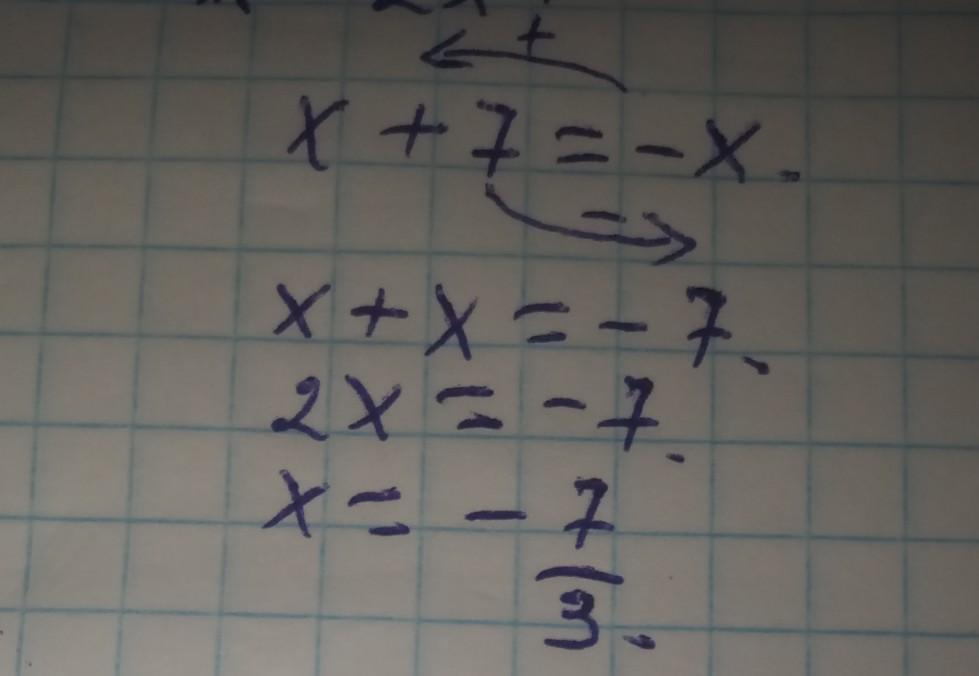 +
x + 7 = - x.
-
x + x = - 7.
2x = - 7.
x = - 7
3.